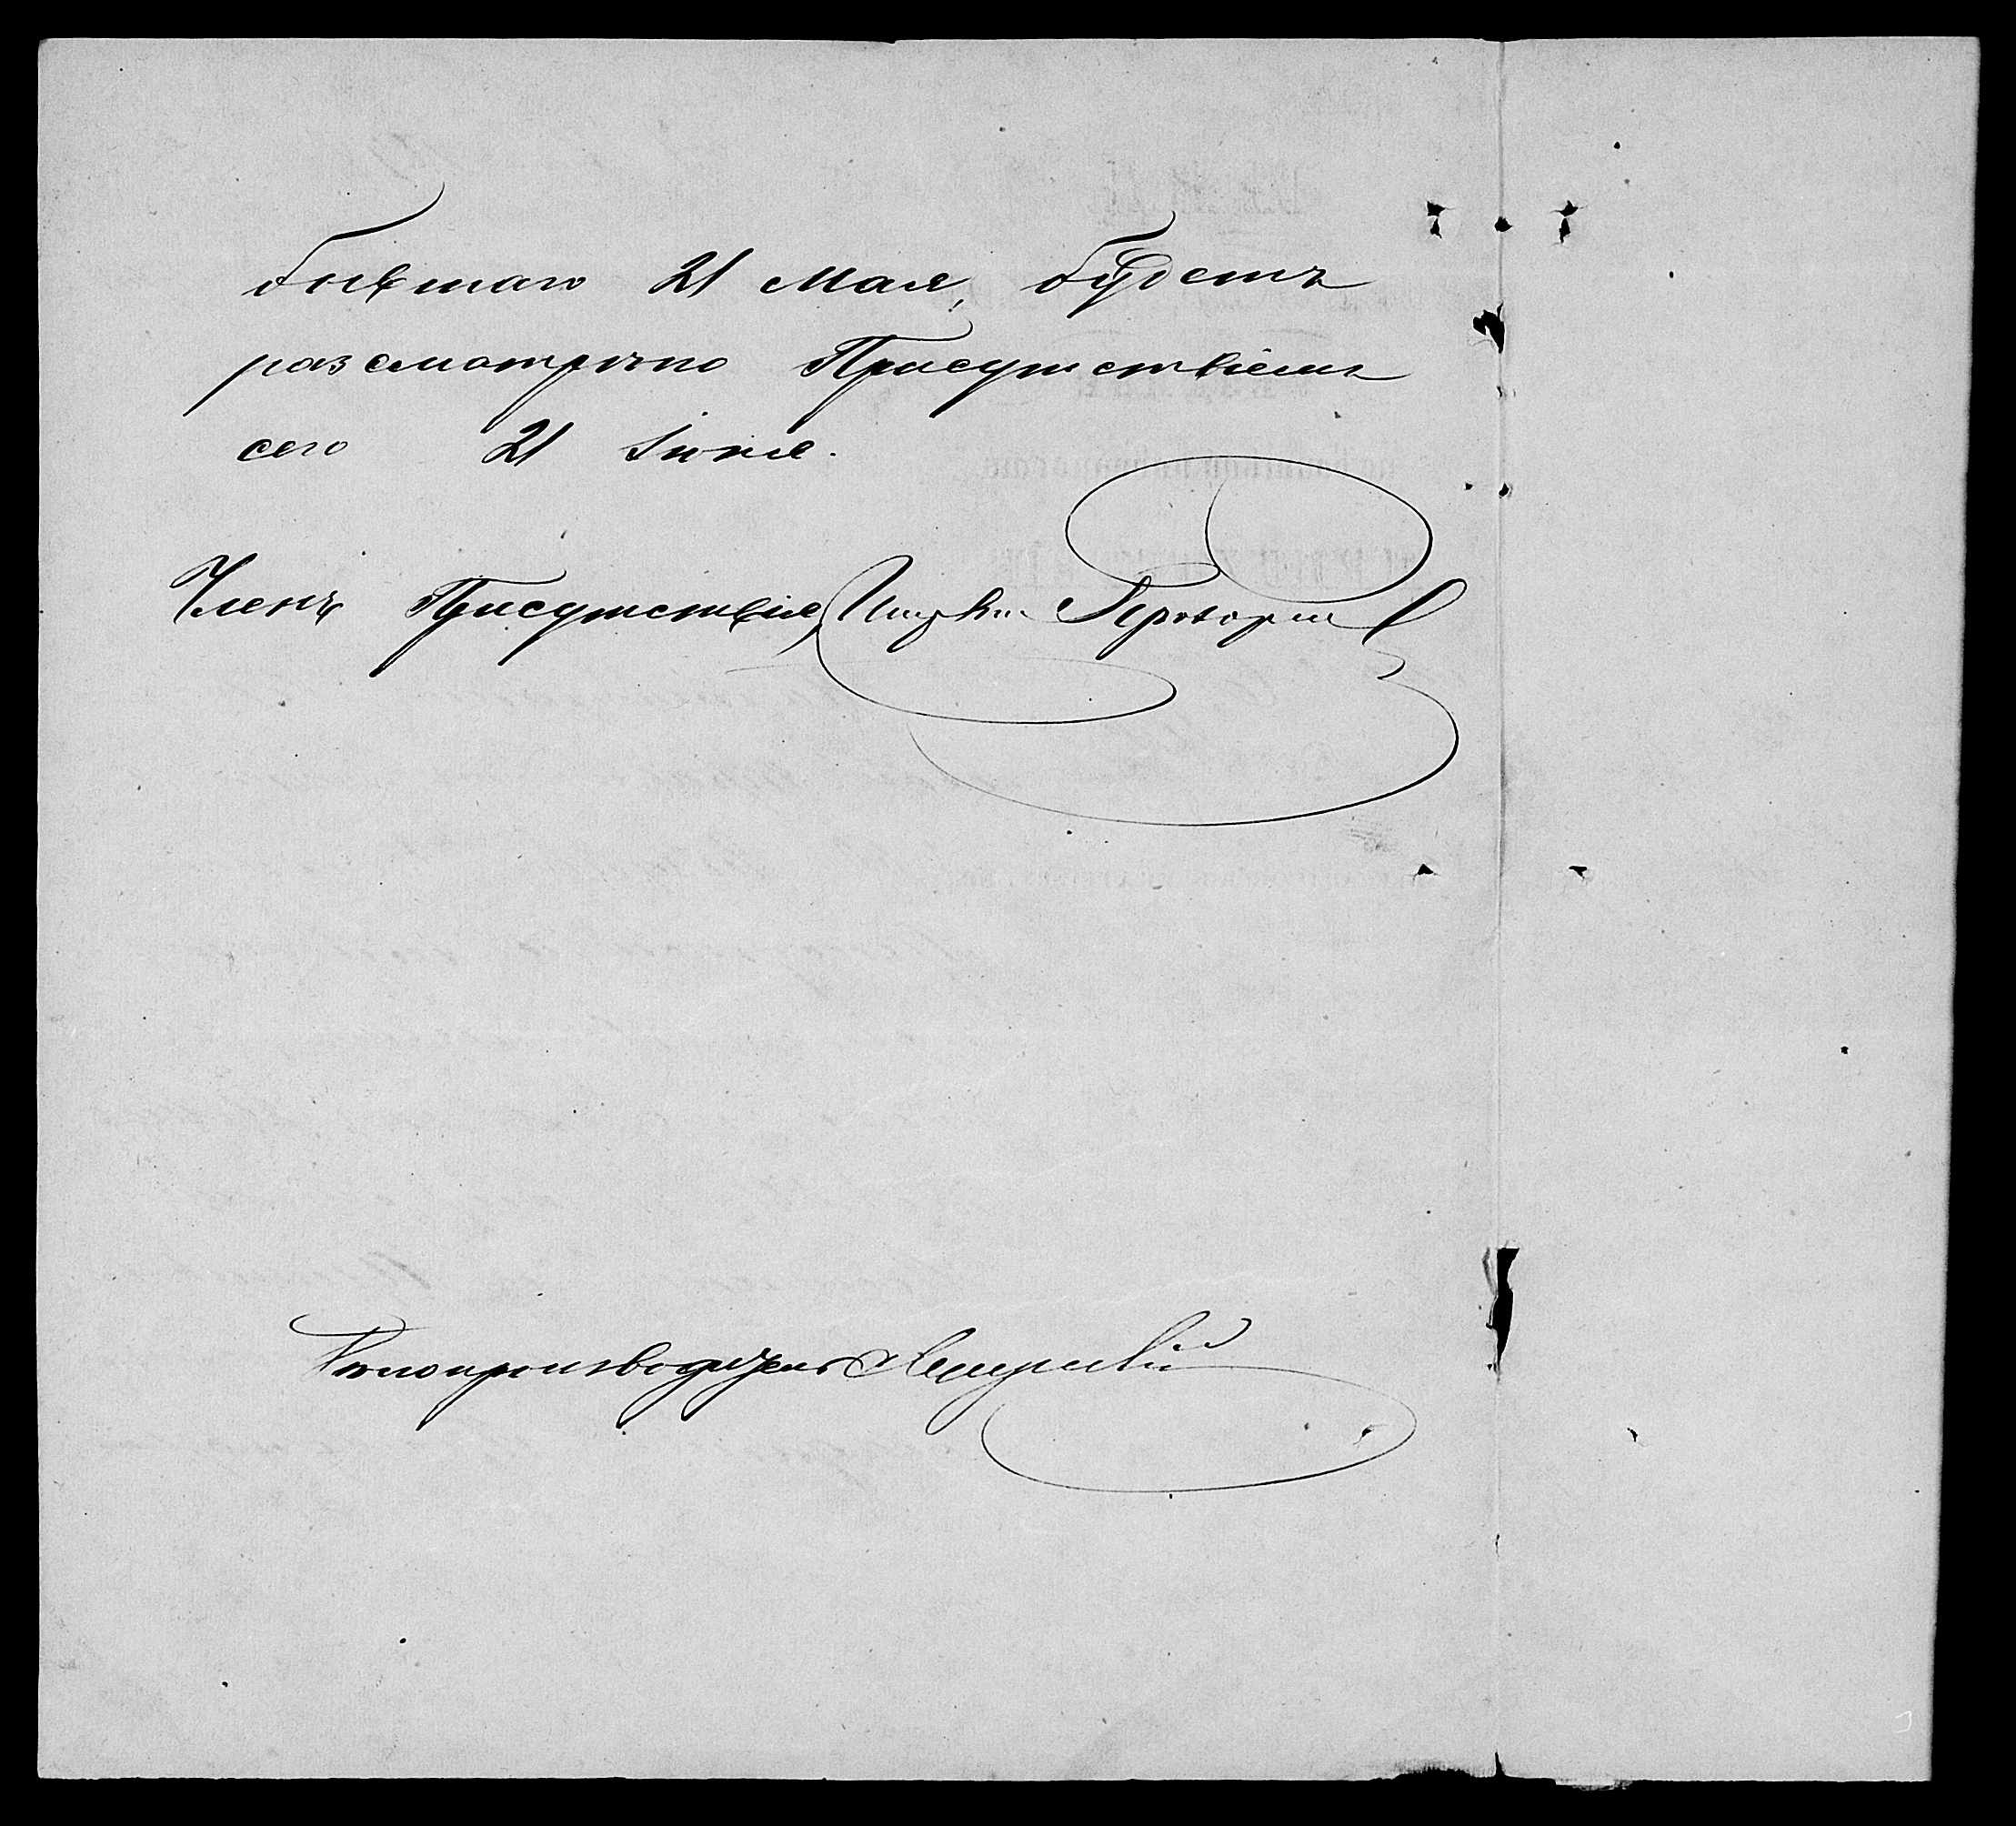 бывшаго 21 Мая, будетъ
разсмотрѣно Присутствіемъ
сего 21 Іюня.
Членъ Присутствія,
Дѣлопроизводитель